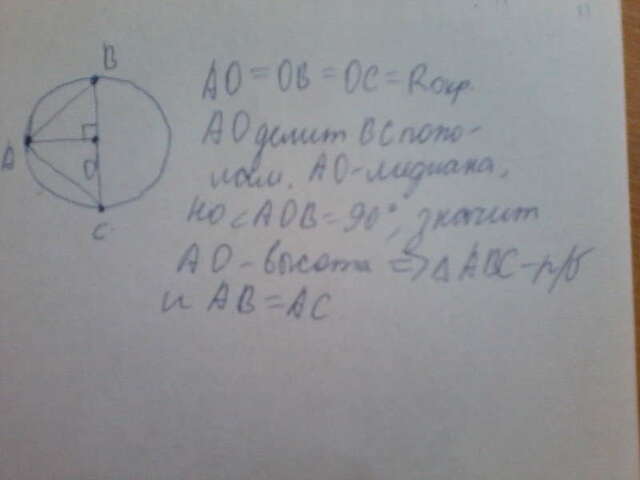 B
A
O
C
AO = OB = OC = Rокр.
AO делит BC попо-
лам. AO - медиана,
но < AOB = 90°, значит
AO - высота => △ ABC - р/б
и AB = AC